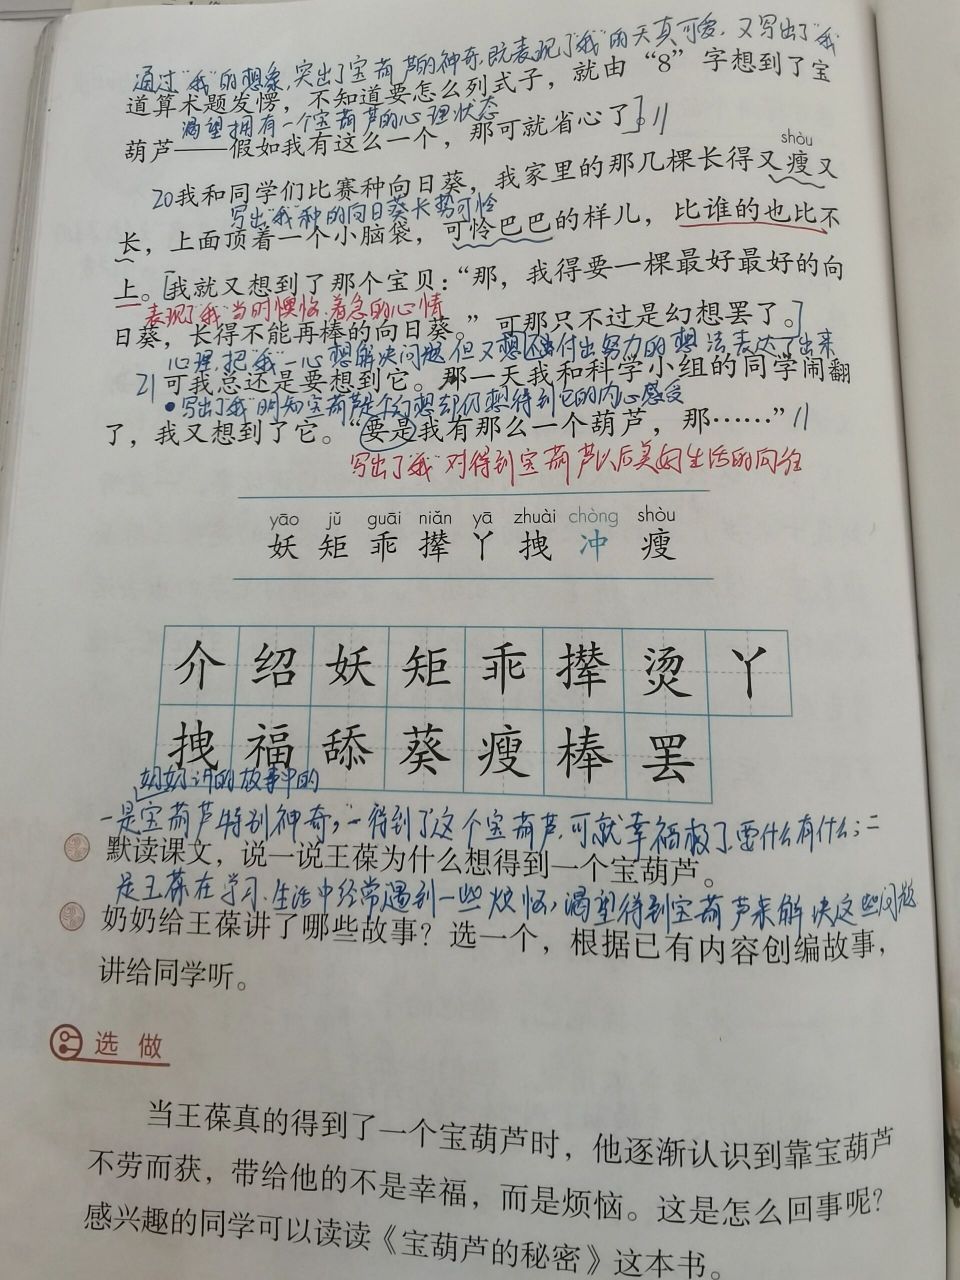 通过“我”的想象,突出了宝葫芦的神奇,既表现了“我”的天真可爱,又写出了“我”
道算术题发愣，不知道要怎么列式子，就由“8”字想到了宝
渴望拥有一个宝葫芦的心理状态
葫芦——假如我有这么一个，那可就省心了。
shòu
20我和同学们比赛种向日葵，我家里的那几棵长得又瘦又
写出“我”种的向日葵长势可怜
长，上面顶着一个小脑袋，可怜巴巴的样儿，比谁的也比不
上。我就又想到了那个宝贝：“那，我得要一棵最好最好的向
表现了“我”当时懊恼、着急的心情
日葵，长得不能再棒的向日葵。”可那只不过是幻想罢了。
心理,把“我”一心想解决问题,但又想付出努力的想法表达了出来
21可我总还是要想到它。那一天我和科学小组的同学闹翻
写出了“我”明知宝葫芦是个幻想却仍想得到它的内心感受
了，我又想到了它。“要是我有那么一个葫芦，那……”
写出了“我”对得到宝葫芦以后美好生活的向往
yāo jǔ guāi niǎn yā zhuài chòng shòu
妖 矩 乖 撵 丫 拽 冲 瘦
介 绍 妖 矩 乖 撵 烫 丫
拽 福 舔 葵 瘦 棒 罢
奶奶讲的故事中的
一是宝葫芦特别神奇,一得到了这个宝葫芦,可就幸福极了,要什么有什么;二
默读课文，说一说王葆为什么想得到一个宝葫芦。
是王葆在学习、生活中经常遇到一些烦恼,渴望得到宝葫芦来解决这些问题
奶奶给王葆讲了哪些故事？选一个，根据已有内容创编故事，
讲给同学听。
选做
当王葆真的得到了一个宝葫芦时，他逐渐认识到靠宝葫芦
不劳而获，带给他的不是幸福，而是烦恼。这是怎么回事呢？
感兴趣的同学可以读读《宝葫芦的秘密》这本书。